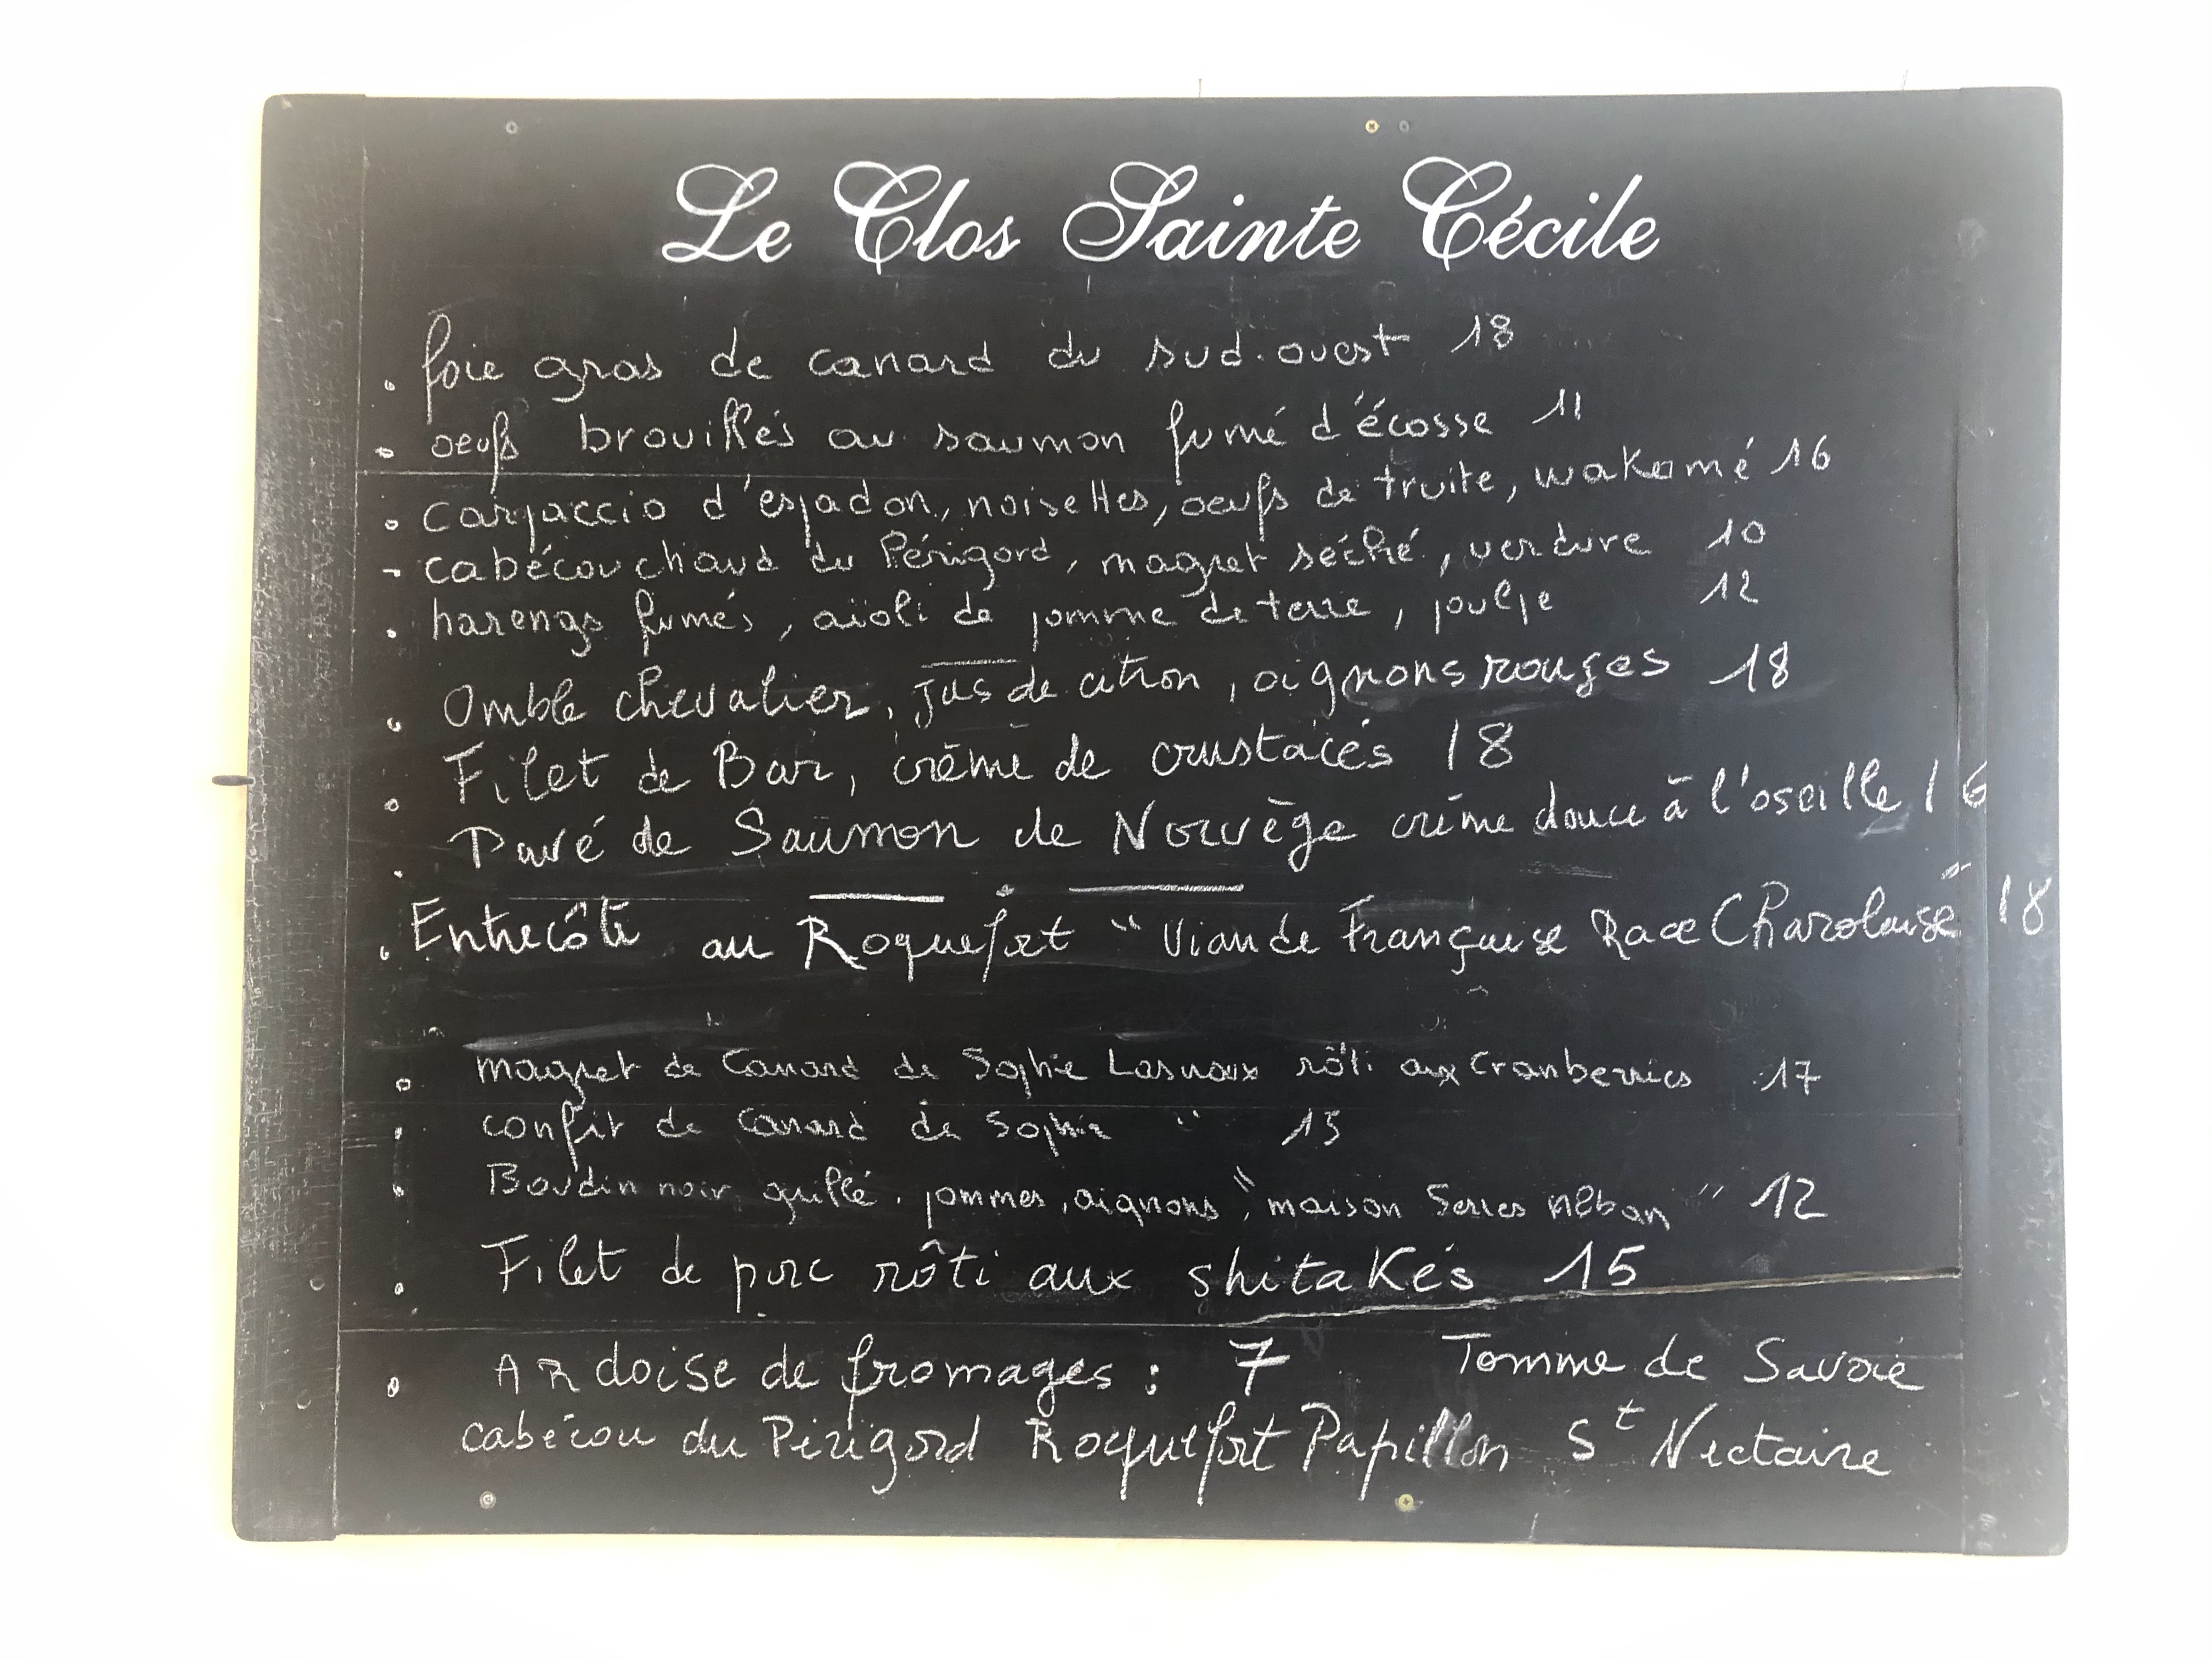 Le Clos Sainte Cécile
. foie gras de canard du sud.ouest 18
. oeufs brouillés au saumon fumé d'écosse 11
. carpaccio d'espadon, noisettes, oeufs de truite, wakamé 16
- cabécou chaud du Périgord, magret séché, verdure 10
. harengs fumés, aïoli de pomme de terre, poulpe 12
. Omble chevalier, jus de citron, oignons rouges 18
. Filet de Bar, crème de crustacés 18
. Pavé de Saumon de Norvège crème douce à l'oseille 16
. Entrecôte au Roquefort " Viande Française Race Charolaise 18
. magret de Canard de Sophie Lasvaux rôti aux Cranberries 17
. confit de Canard de Sophie " 15
. Boudin noir grillé. pommes, oignons " maison Serres " 12
. Filet de porc rôti aux shitakés 15
. ARdoise de fromages : 7 Tomme de Savoie
cabécou du Périgord Roquefort Papillon St Nectaire